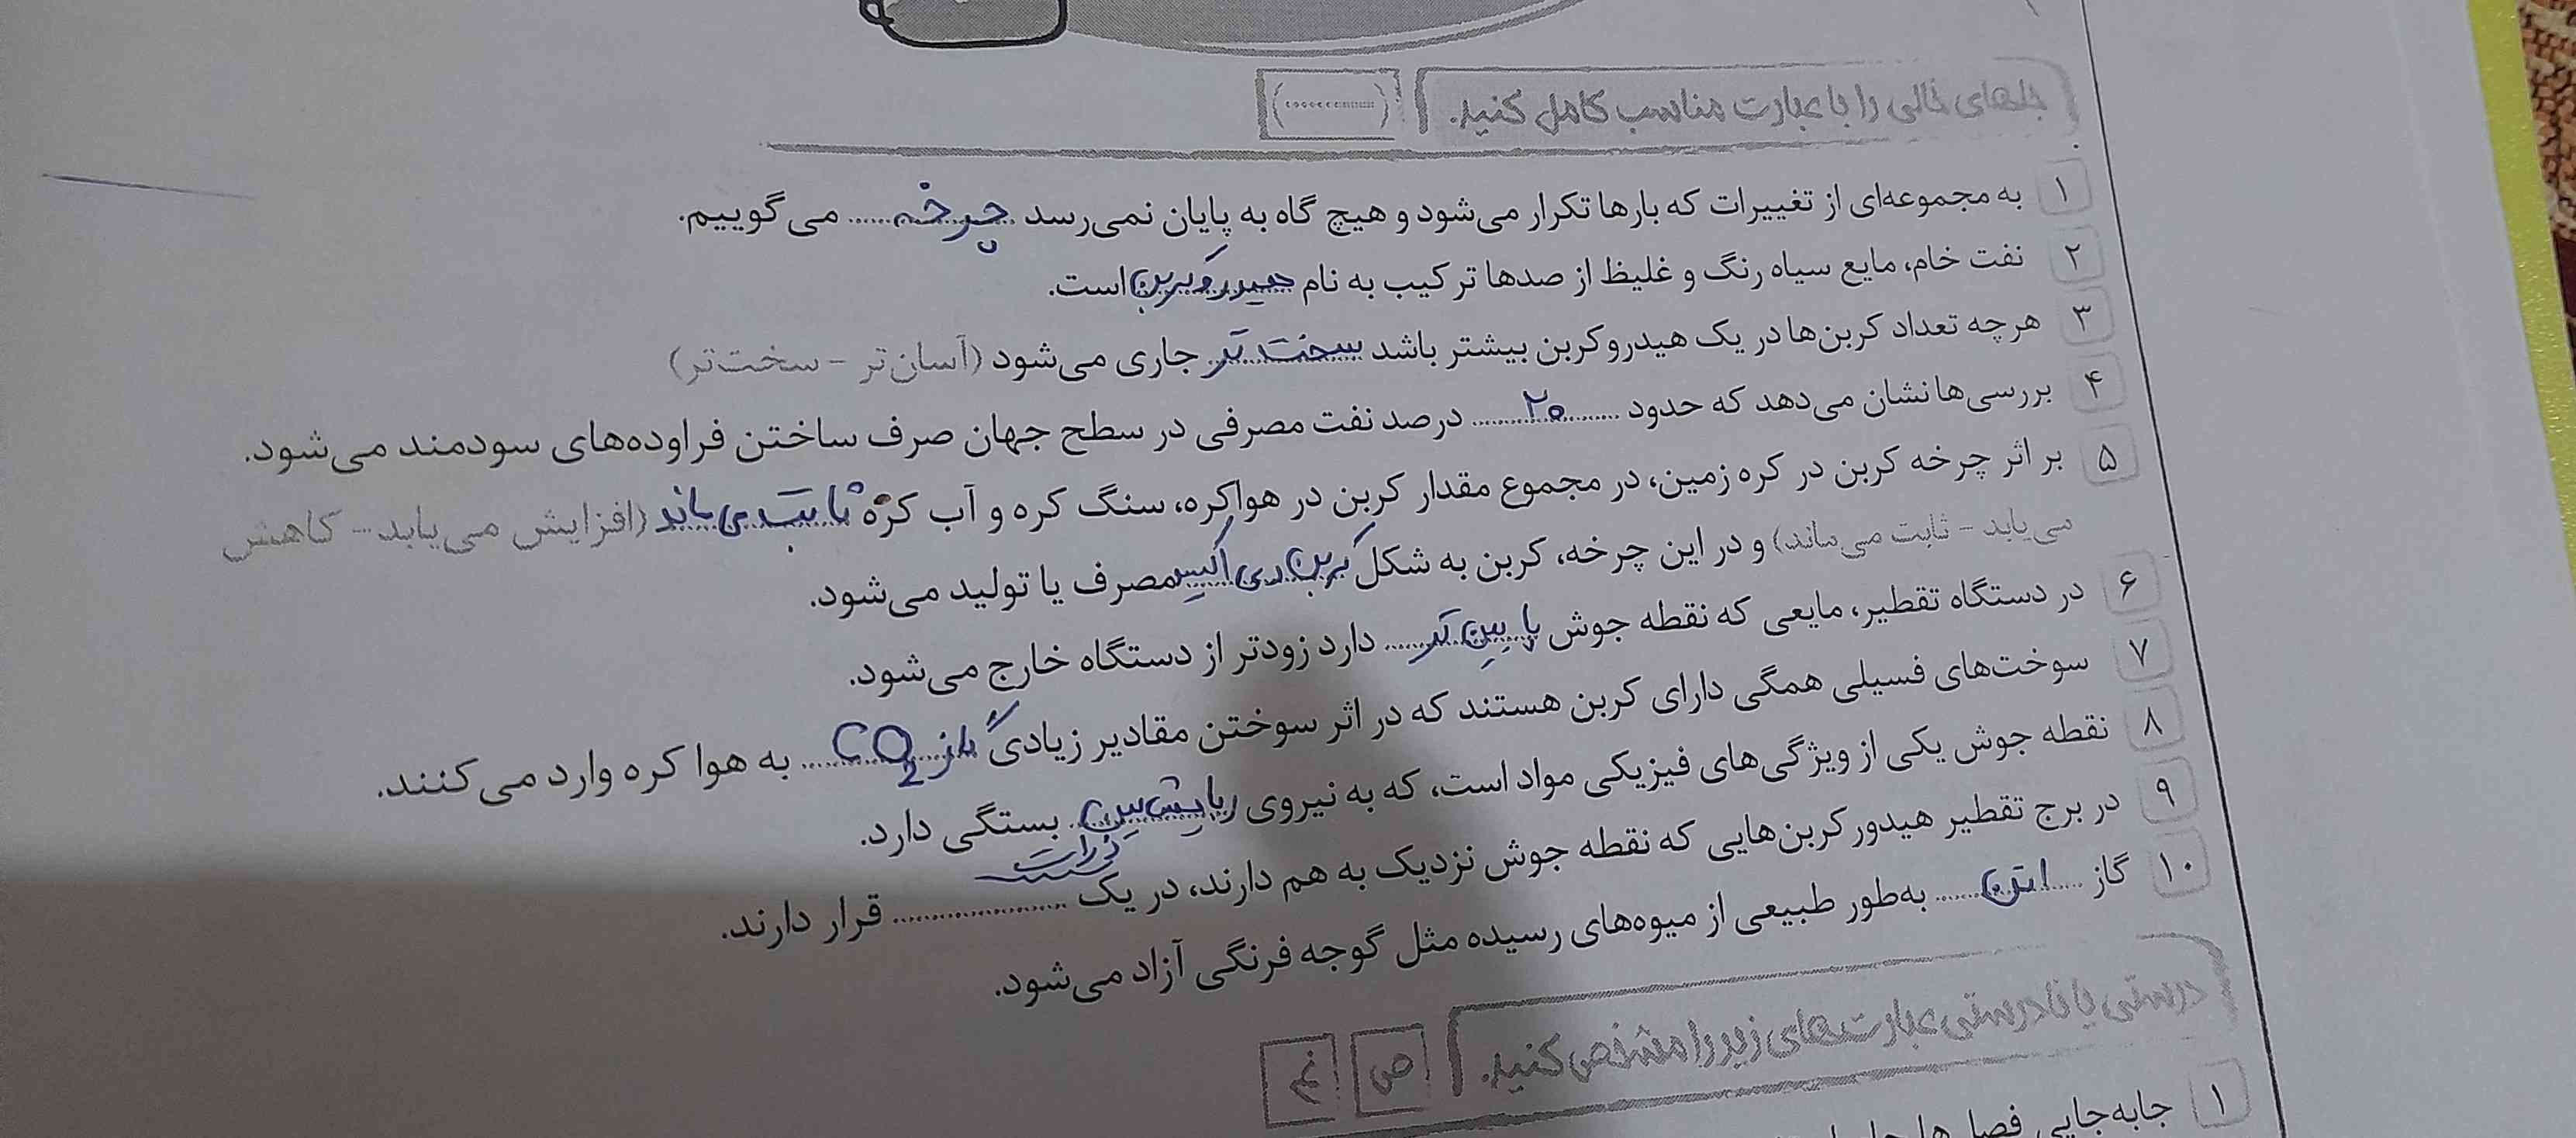 جاهای خالی را با عبارت مناسب کامل کنید. (..............)
۱ به مجموعه‌ای از تغییرات که بارها تکرار می‌شود و هیچ گاه به پایان نمی‌رسد چرخه می‌گوییم.
۲ نفت خام، مایع سیاه رنگ و غلیظ از صدها ترکیب به نام هیدروکربن است.
۳ هرچه تعداد کربن‌ها در یک هیدروکربن بیشتر باشد سخت تر جاری می‌شود (آسان‌تر - سخت‌تر)
۴ بررسی‌ها نشان می‌دهد که حدود ۲۰ درصد نفت مصرفی در سطح جهان صرف ساختن فراودەهای سودمند می‌شود.
۵ بر اثر چرخه کربن در کره زمین، در مجموع مقدار کربن در هواکره، سنگ کره و آب کره ثابت می ماند (افزایش می‌یابد - کاهش
می‌یابد - ثابت می‌ماند) و در این چرخه، کربن به شکل کربن دی اکسید مصرف یا تولید می‌شود.
۶ در دستگاه تقطیر، مایعی که نقطه جوش پایین تر دارد زودتر از دستگاه خارج می‌شود.
۷ سوخت‌های فسیلی همگی دارای کربن هستند که در اثر سوختن مقادیر زیادی گاز CO2 به هوا کره وارد می‌کنند.
۸ نقطه جوش یکی از ویژگی‌های فیزیکی مواد است، که به نیروی ربایش بین ذرات بستگی دارد.
۹ در برج تقطیر هیدورکربن‌هایی که نقطه جوش نزدیک به هم دارند، در یک .................... قرار دارند.
۱۰ گاز اتن به‌طور طبیعی از میوه‌های رسیده مثل گوجه فرنگی آزاد می‌شود.
درستی یا نادرستی عبارت‌های زیر را مشخص کنید. ص غ
۱ جابه‌جایی فصل ها